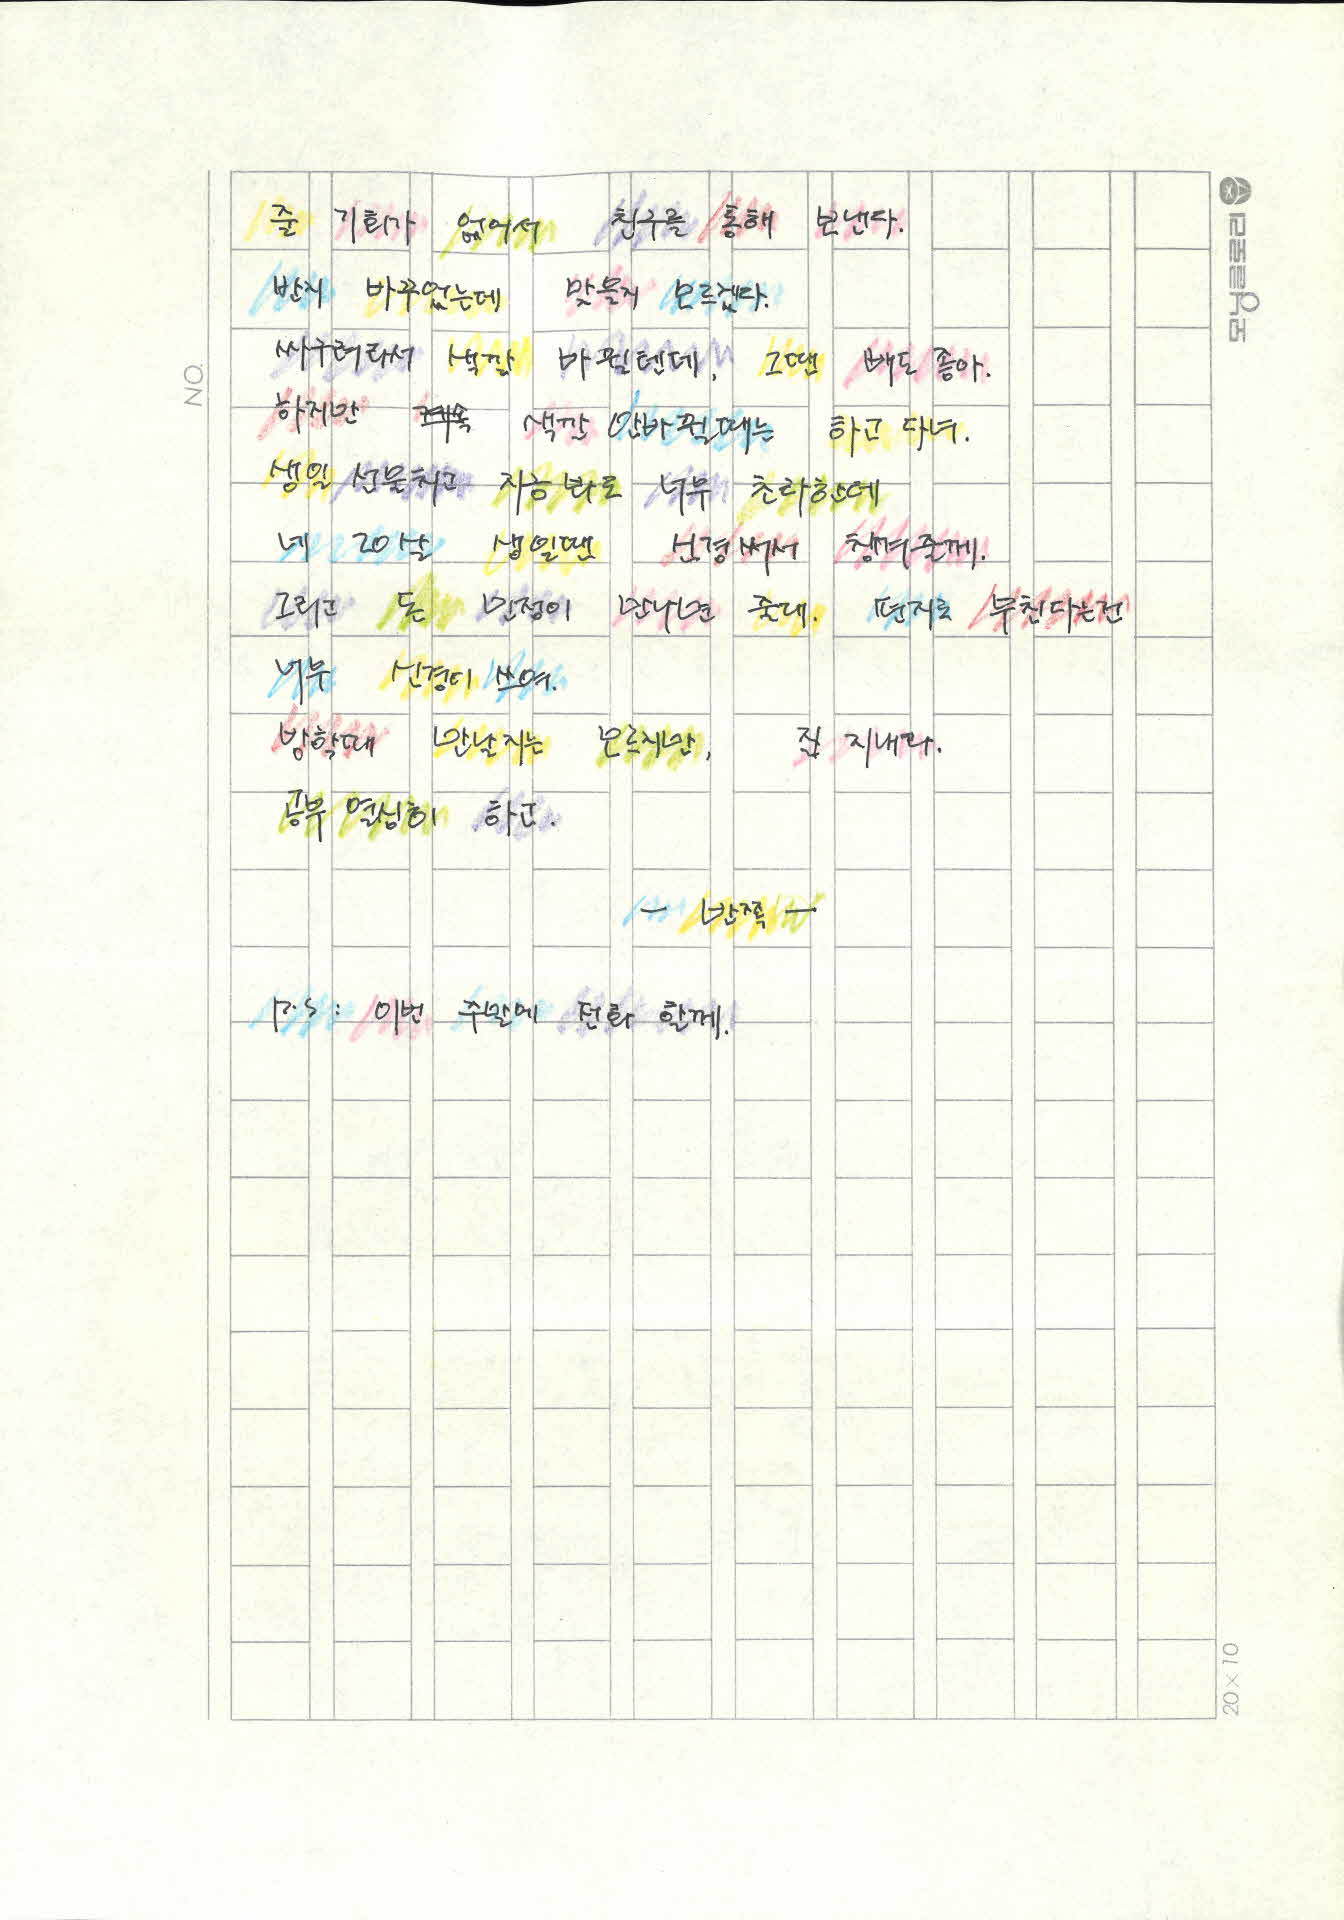 줄 기회가 없어서 친구를 통해 보낸다.
반지 바꾸었는데 맞을지 모르겠다.
싸구려라서 색깔 바뀔텐데, 그땐 빼도 좋아.
하지만 색깔 안바뀔때는 하고 다녀.
생일 선물치고 너무 초라한데
네 20살 생일땐 신경써서 챙겨줄께.
그리고 돈 만정이 만나면 줄대. 편지로 부친다는건
너무 신경이 쓰여.
방학때 만날지는 모르지만, 잘 지내라.
공부 열심히 하고.
- 반쪽 -
P.S : 이번 주말에 전화 할께.
NO.
모닝글로리
20×10